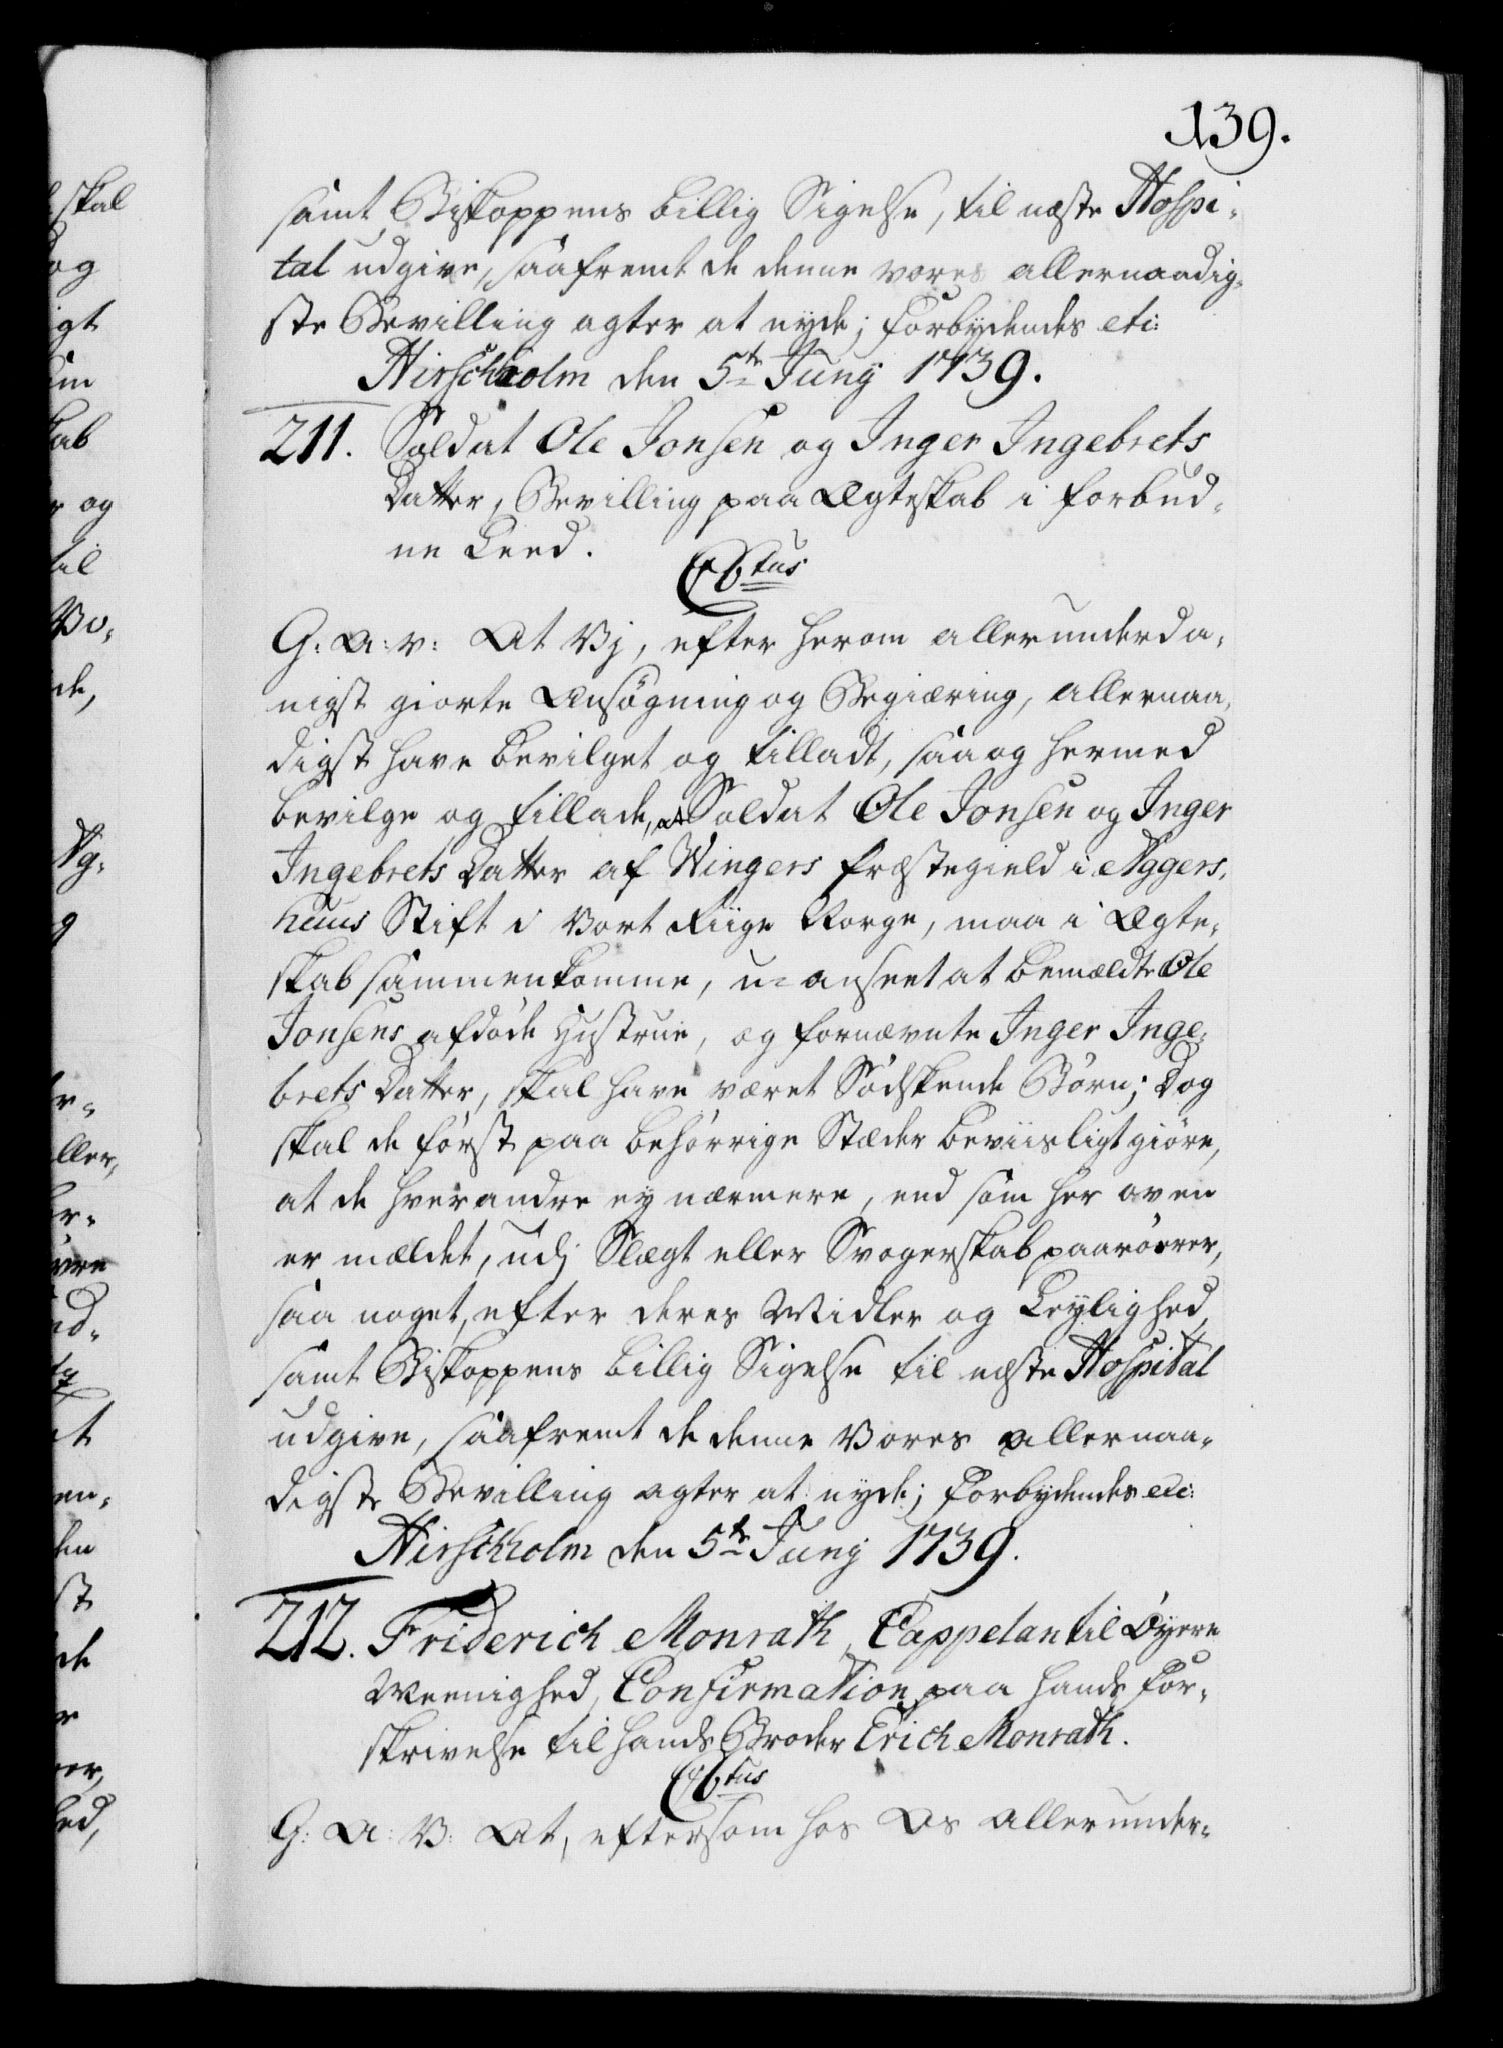 139.
samt Biskoppens billig Sigelse, til næste Hospi-
tal udgive, saafremt de denne vores allernaadig-
ste Bevilling agter at nyde; Forbydendes etc:
Hirschholm den 5te Junij 1739.
211. Soldat Ole Jonsen og Inger Ingebrets
Datter, Bevilling paa Ægteskab i forbud-
ne Leed.
C6tus
G: A: v: At Vj, efter herom allerunderda-
nigst giorte Ansøgning og Begiæring, allernaa-
digst have bevilget og tilladt, saa og hermed
bevilge og tillade, at Soldat Ole Jonsen og Inger
Ingebrets Datter af Wingers Præstegield i Aggers-
huus Stift i Vort Riige Norge, maa i Ægte-
skab sammenkomme, u-anseet at bemældte Ole
Jonsens afdøde Hustrue, og fornævnte Inger Inge-
brets Datter, skal have været Sødskende Børn; Dog
skal de først paa behørrige Stæder beviisligt giøre,
at de hverandre ey nærmere, end som her oven
er mældet, udj Slægt eller Svogerskab paarører,
saa noget, efter deres Midler og Leylighed,
samt Biskoppens billig Sigelse til næste Hospital
udgive, saafremt de denne Vores allernaa-
digste Bevilling agter at nyde; Forbydendes etc:
Hirschholm den 5te Junij 1739.
212. Friderich Monrath, Cappelan til Øyere
Meenighed, Confirmation paa hands For-
skrivelse til hands Broder Erich Monrath.
C6tus
G: A: V: At, eftersom hos Os allerunder-